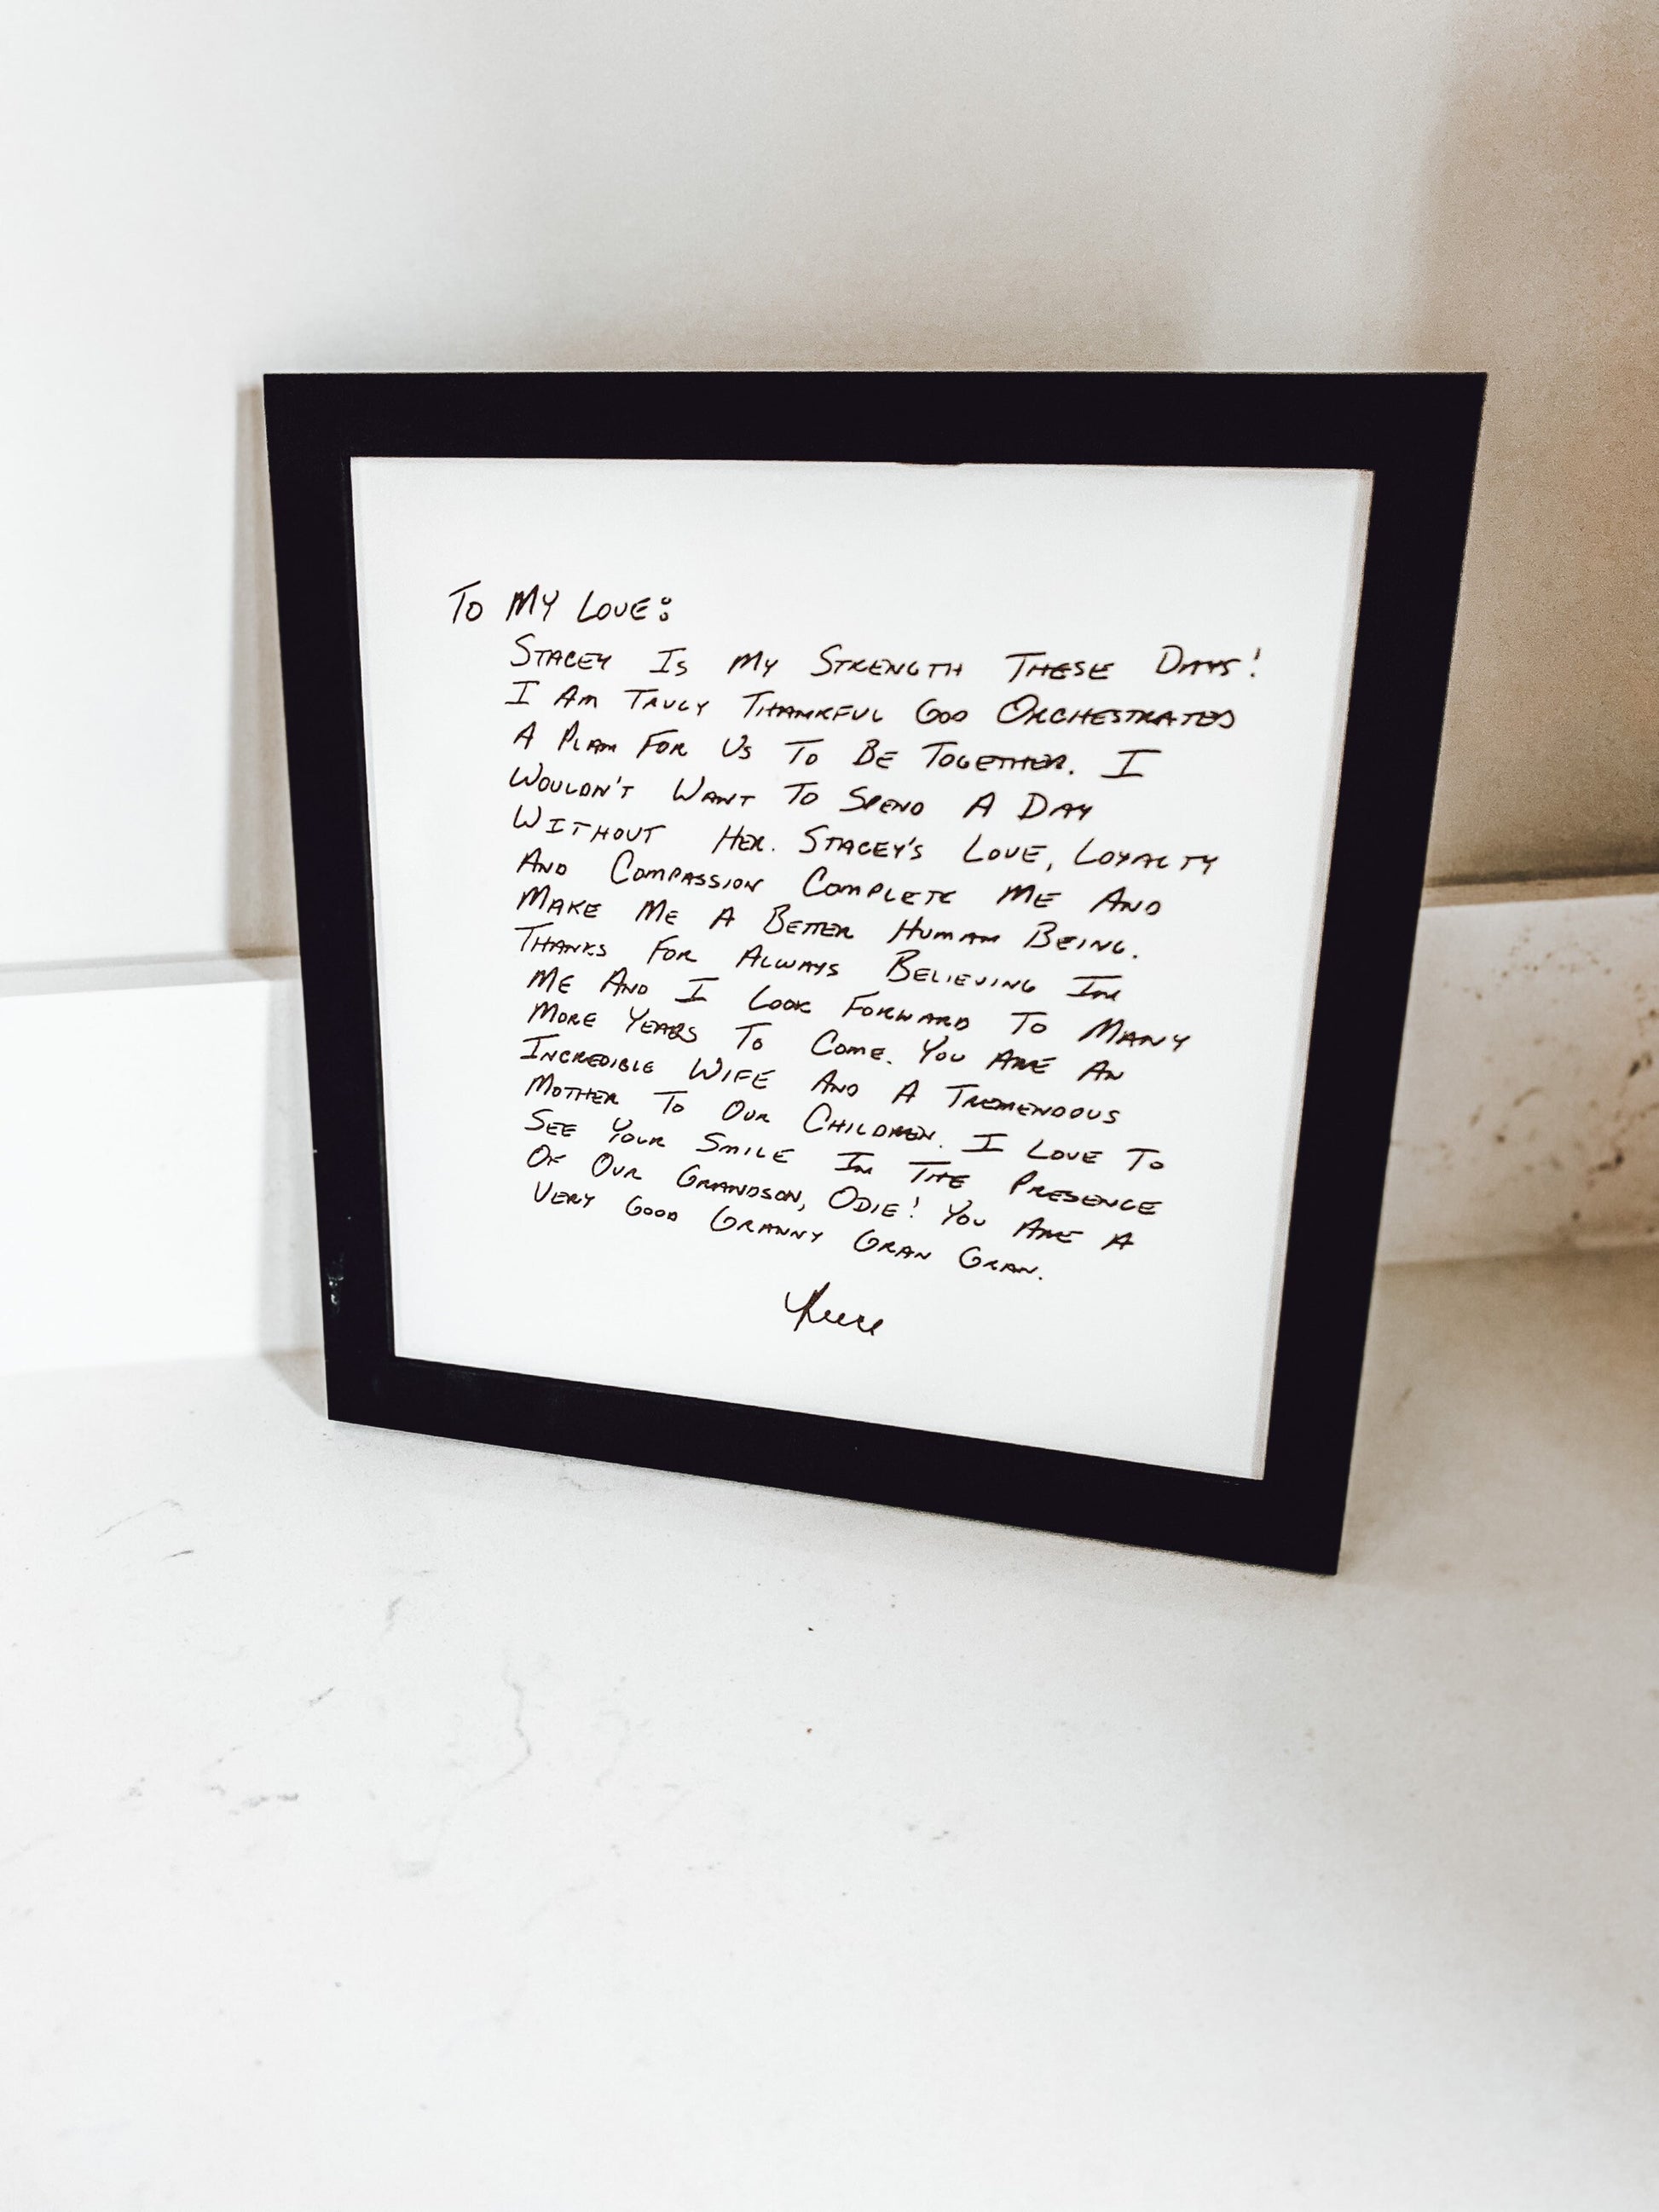 To My Love:
Stacey Is My Strength These Days!
I Am Truly Thankful God Orchestrated
A Plan For Us To Be Together. I
Wouldn't Want To Spend A Day
Without Her. Stacey's Love, Loyalty
And Compassion Complete Me And
Make Me A Better Human Being.
Thanks For Always Believing In
Me And I Look Forward To Many
More Years To Come. You Are An
Incredible Wife And A Tremendous
Mother To Our Children. I Love To
See Your Smile In The Presence
Of Our Grandson, Odie! You Are A
Very Good Granny Gran Gran.